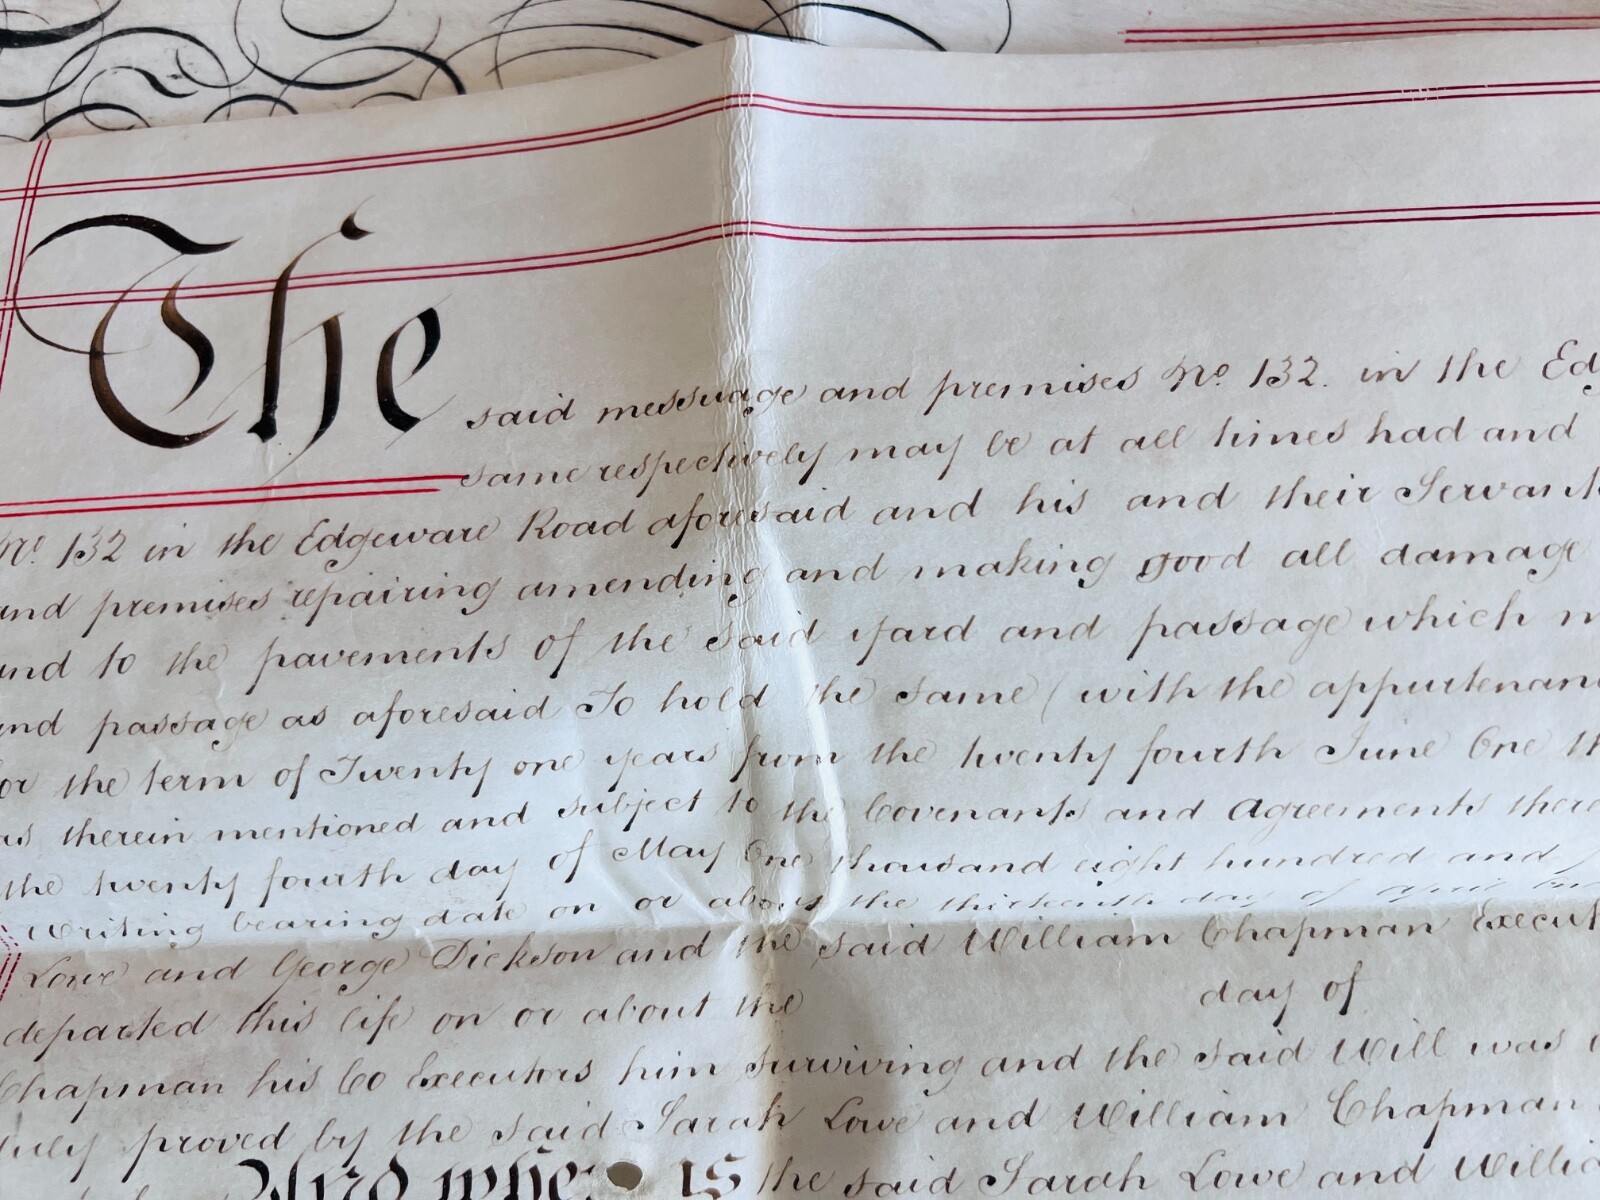 The said messuage and premises No. 132. in the Edg
same respectively may be at all times had and
No. 132 in the Edgeware Road aforesaid and his and their Servant
and premises repairing amending and making good all damage
and to the pavements of the said yard and passage which m
and passage as aforesaid To hold the same (with the appurtenan
for the term of Twenty one years from the twenty fourth June One th
as therein mentioned and subject to the Covenants and Agreements there
the twenty fourth day of May One thousand eight hundred and
writing bearing date on or about the thirteenth day of April
Lowe and George Dickson and the said William Chapman Execut
departed this life on or about the day of
Chapman his Co Executors him surviving and the said Will was
duly proved by the said Sarah Lowe and William Chapman
the said Sarah Lowe and Willia